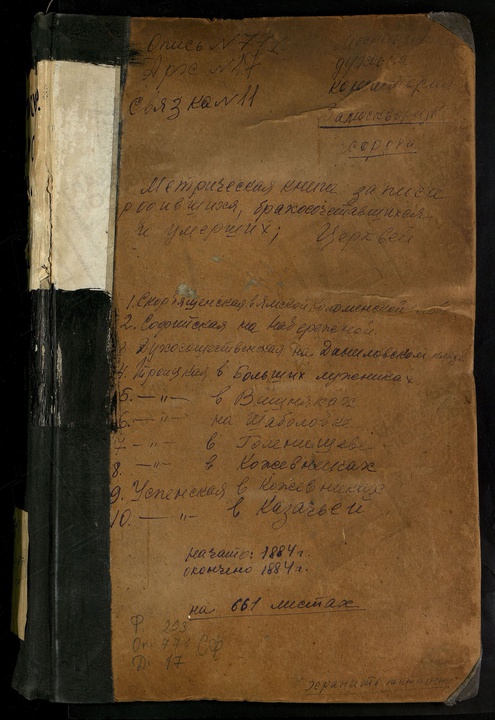 Опись № 772
Арх № 17
Связка № 11
духовная
консистория
Замоскворец
сорока
Метрическая книга записи
родившихся, бракосочетавшихся
и умерших; Церквей
1. Скорбященская в Ямской Коломенской
2. Софийская на набережной
3 Духосошественская на Даниловском кладб
4. Троицкая в больших лужниках
5. — " — в Вишняках
6. — " — на Шаболовке
7 — " — в Голенищеве
8. — " — в Кожевниках
9. Успенская в Кожевниках
10. — " — в Казачьей
начато: 1884 г.
окончено 1884 г.
на 661 листах
Ф 203
Оп. 771 СФ
Д. 17